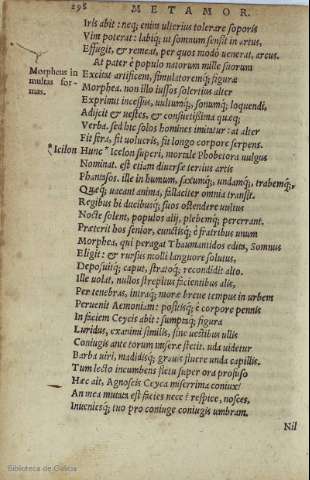 298
METAMOR.
Iris abit: neq; enim ulterius tolerare soporis
Vim poterat: labiq; ut somnum sensit in artus,
Effugit, & remeat, per quos modò uenerat, arcus.
At pater è populo natorum mille suorum
Morpheus in
multas for-
mas.
Excitat artificem, simulatoremq; figuræ
Morphea. non illo iussos solertius alter
Exprimit incessus, uultumq;, sonumq; loquendi,
Adijcit & uestes, & consuetissima quæq;
Verba. sed hic solos homines imitatur: at alter
Fit fera, fit uolucris, fit longo corpore serpens.
Icilon Hunc Icelon superi, mortale Phobetora uulgus
Nominat. est etiam diuersæ tertius artis
Phantasos. ille in humum, saxumq;, undamq;, trabemq;,
Quæq; uacant anima, fallaciter omnia transit.
Regibus hi ducibusq; suos ostendere uultus
Nocte solent, populos alij, plebemq; pererrant.
Præterit hos senior, cunctisq; è fratribus unum
Morphea, qui peragat Thaumantidos edita, Somnus
Eligit: & rursus molli languore solutus,
Deposuitq; caput, stratoq; recondidit alto.
Ille uolat, nullos strepitus facientibus alis,
Per tenebras, intraq; moræ breue tempus in urbem
Peruenit Aemoniam: positisq; è corpore pennis
In faciem Ceycis abit: sumptaq; figura
Luridus, exanimi similis, sine uestibus ullis
Coniugis ante torum miseræ stetit. uda uidetur
Barba uiri, madidisq; grauis fluere unda capillis.
Tum lecto incumbens fletu super ora profuso
Hæc ait, Agnoscis Ceyca miserrima coniux?
An mea mutata est facies nece? respice, nosces,
Inueniesq; tuo pro coniuge coniugis umbram.
Nil
Biblioteca de Galicia